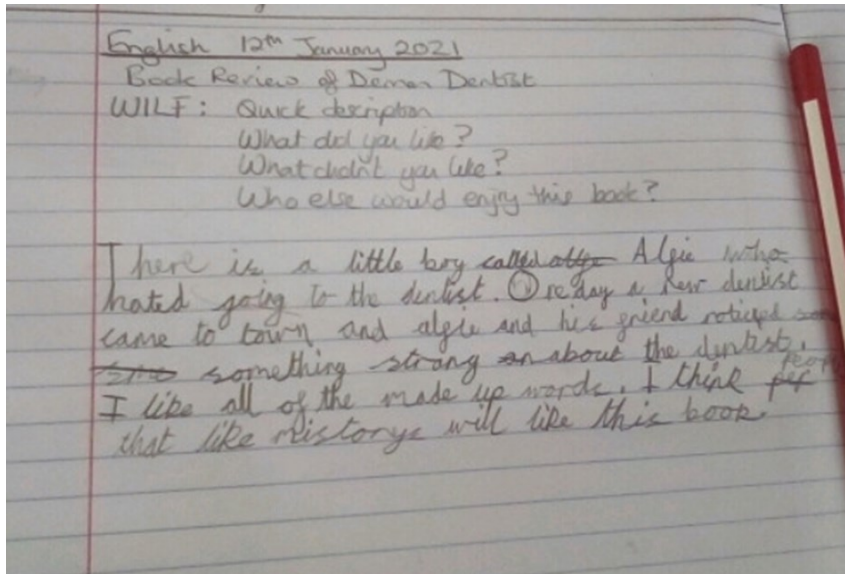 English 12th January 2021
Book Review of Demon Dentist
WILF: Quick description
What did you like?
What didn't you like?
Who else would enjoy this book?
There is a little boy called Algie who
hated going to the dentist. One day a new dentist
came to town and algie and his friend noticed som
something strang an about the dentist.
I like all of the made up words. I think per people
that like mistorys will like this book.